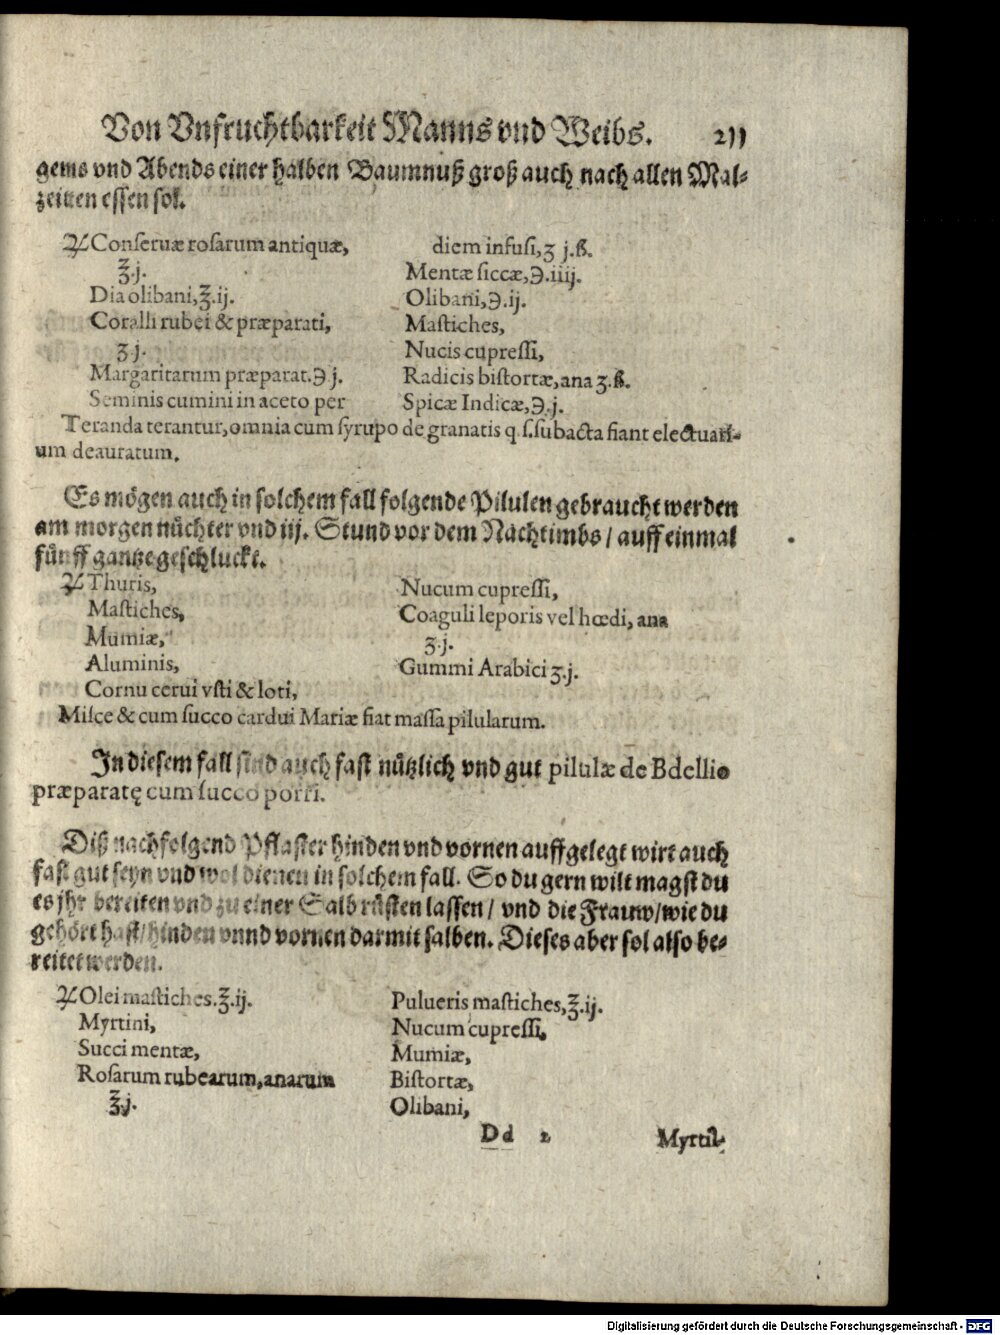 Von Vnfruchtbarkeit Manns vnd Weibs. 211
gens vnd Abends einer halben Baumnuß groß auch nach allen Mal-
zeiten essen sol.
℞ Conseruæ rosarum antiquæ,
℥.j.
Dia olibani,℥.ij.
Coralli rubei & præparati,
ʒ.j.
Margaritarum præparat.℈ j.
Seminis cumini in aceto per
diem infusi,ʒ j.ß.
Mentæ siccæ,℈.iiij.
Olibani,℈.ij.
Mastiches,
Nucis cupressi,
Radicis bistortæ,ana ʒ.ß.
Spicæ Indicæ,℈.j.
Teranda terantur,omnia cum syrupo de granatis q s.subacta fiant electuari-
um deauratum.
Es mögen auch in solchem fall folgende Pilulen gebraucht werden
am morgen nüchter vnd iij. Stund vor dem Nachtimbs / auff einmal
fünff gantze geschluckt.
℞ Thuris,
Mastiches,
Mumiæ,
Aluminis,
Cornu cerui vsti & loti,
Nucum cupressi,
Coaguli leporis vel hœdi, ana
ʒ.j.
Gummi Arabici ʒ.j.
Misce & cum succo cardui Mariæ fiat massa pilularum.
In diesem fall sind auch fast nützlich vnd gut pilulæ de Bdellio
præparatę cum succo porri.
Diß nachfolgend Pflaster hinden vnd vornen auffgelegt wirt auch
fast gut seyn vnd wol dienen in solchem fall. So du gern wilt magst du
es jhr bereiten vnd zu einer Salb rüsten lassen / vnd die Frauw/wie du
gehört hast/hinden vnnd vornen darmit salben. Dieses aber sol also be-
reitet werden.
℞ Olei mastiches.℥.ij.
Myrtini,
Succi mentæ,
Rosarum rubearum,anarum
℥.j.
Pulueris mastiches,℥.ij.
Nucum cupressi,
Mumiæ,
Bistortæ,
Olibani,
Dd 2 Myrtil-
Digitalisierung gefördert durch die Deutsche Forschungsgemeinschaft - DFG